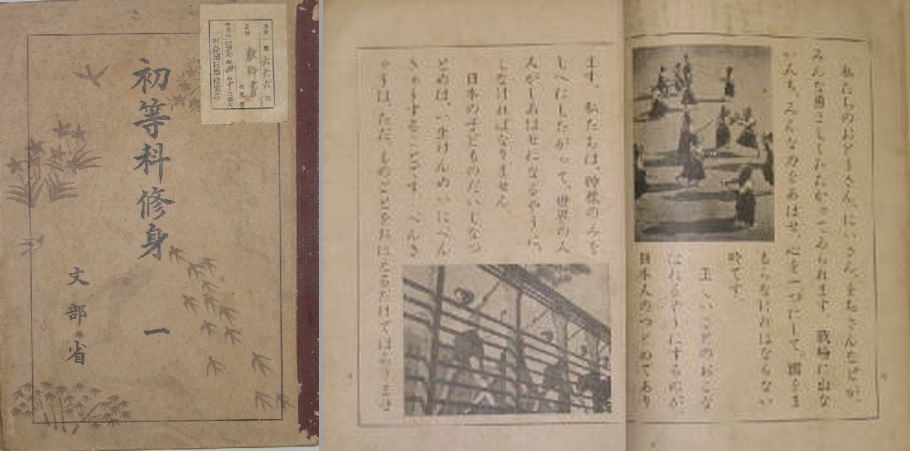 初等科修身 一
文部省
教科書
私たちのおとうさん、にいさん、をぢさんなどが、
みんな勇ましくたたかつてゐられます。戰場に出な
い人も、みんな力をあはせ、心を一つにして、國をま
もらなければならない
時です。
正しいことのおこな
はれるやうにするのが
日本人のつとめであり
ます。私たちは、神樣のみを
しへにしたがつて、世界の人
人がしあはせになるやうに、
しなければなりません。
日本の子どものだいじなつ
とめは、一生けんめいにべん
きやうすることです。べんき
やうは、ただ、ものごとをおぼえるだけではありませ